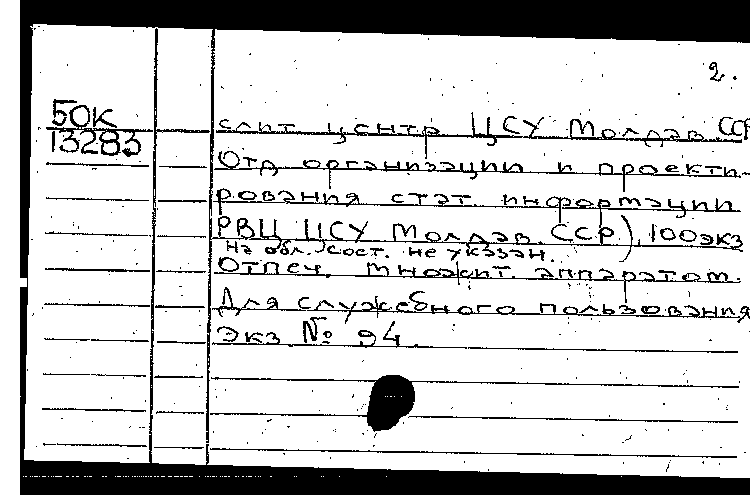 2.
50К
13283
слит центр ЦСУ Молдав. ССР
Отд организации и проекти-
рования стат. информации
РВЦ ЦСУ Молдав. ССР), 100экз
На обл. сост. не указан.
Отпеч. множит. аппаратом.
Для служебного пользования
Экз. № 94.